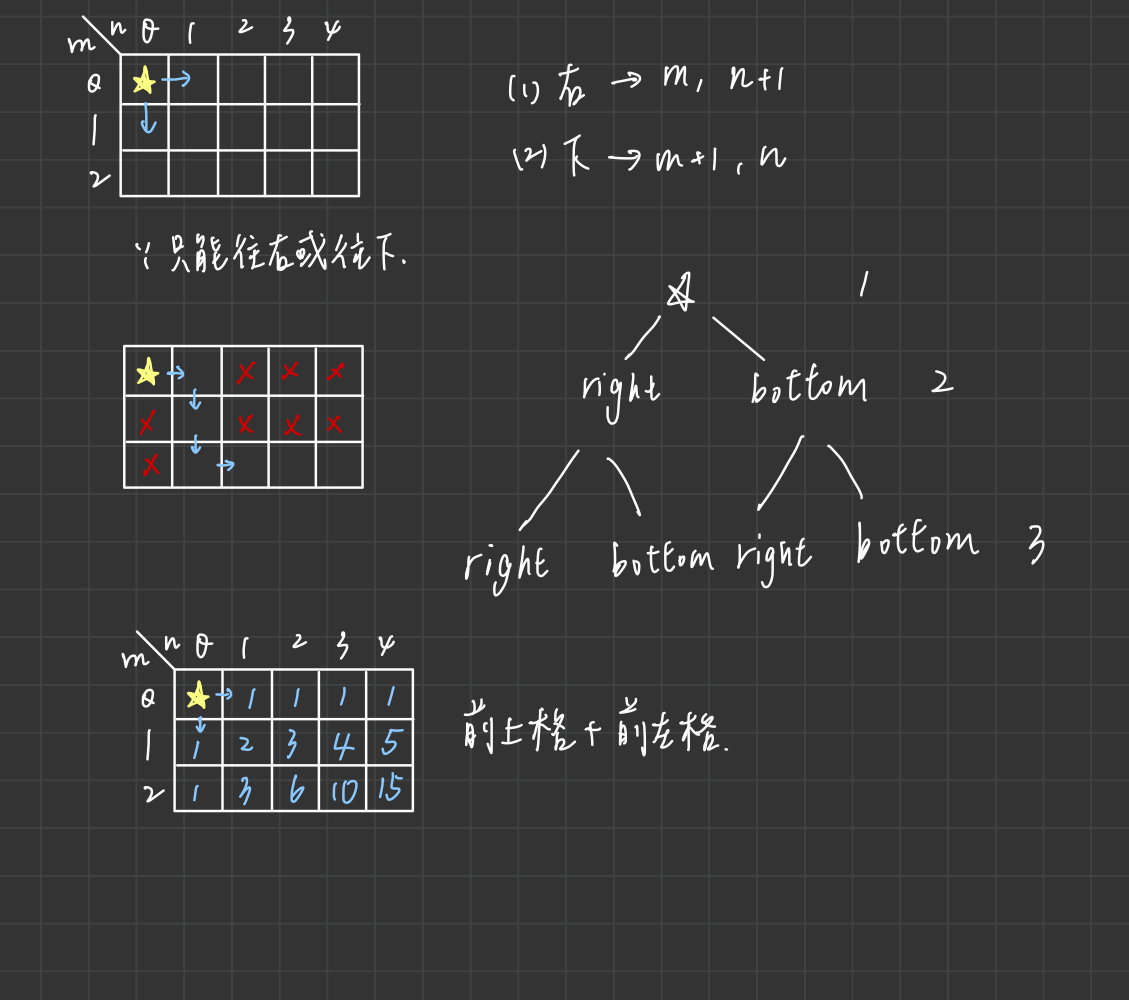 n 0 1 2 3 4
m
0
1
2
(1) 右 → m, n+1
(2) 下 → m+1, n
∵ 只能往右或往下.
☆ 1
right bottom 2
right bottom right bottom 3
n 0 1 2 3 4
m
0 1 1 1 1
1 1 2 3 4 5
2 1 3 6 10 15
前上格 + 前左格.